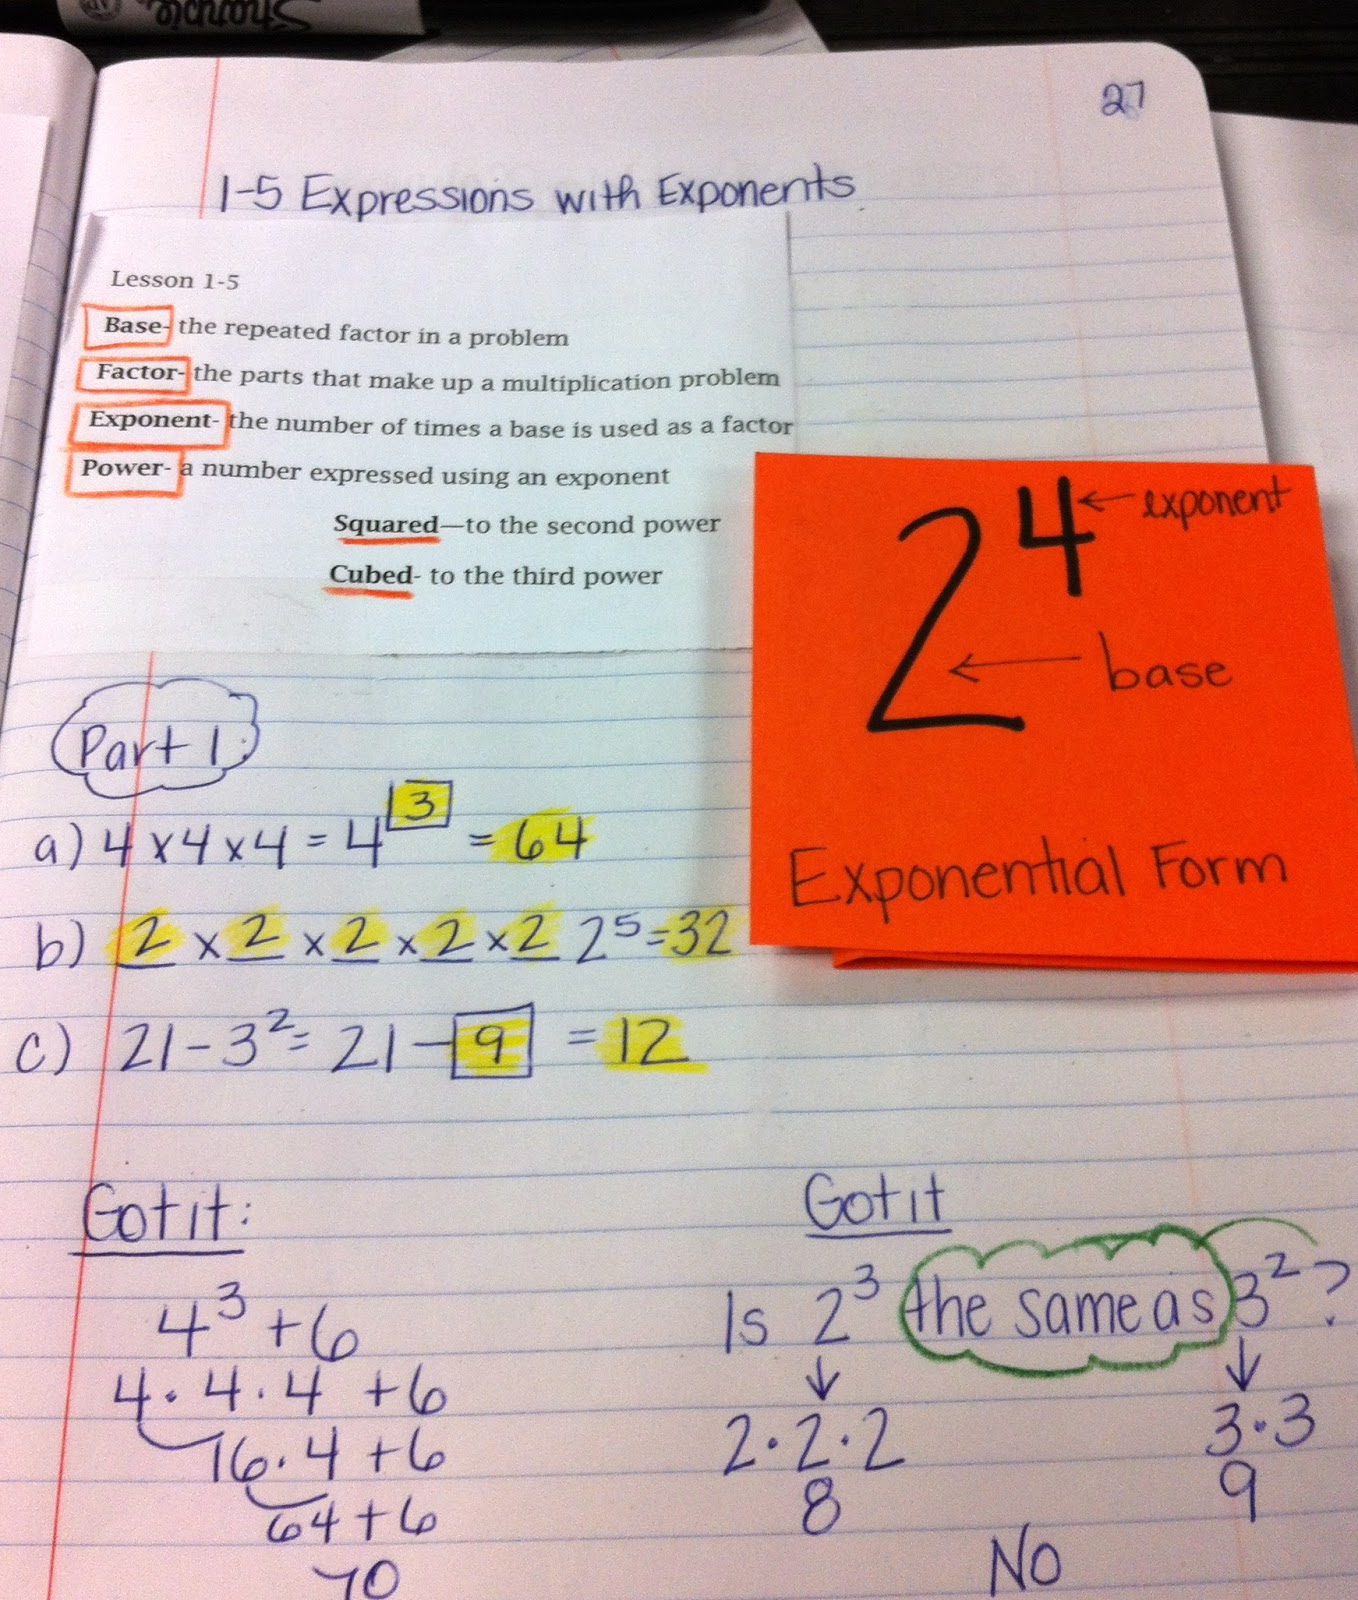 Sharpie
27
1-5 Expressions with Exponents
Lesson 1-5
Base- the repeated factor in a problem
Factor- the parts that make up a multiplication problem
Exponent- the number of times a base is used as a factor
Power- a number expressed using an exponent
Squared—to the second power
Cubed- to the third power
2⁴ ← exponent
← base
Exponential Form
Part 1:
a) 4 x 4 x 4 = 4³ = 64
b) 2 x 2 x 2 x 2 x 2 2⁵ = 32
c) 21 - 3² = 21 - 9 = 12
Got it:
4³ + 6
4 · 4 · 4 + 6
16 · 4 + 6
64 + 6
70
Got it
Is 2³ the same as 3²?
↓ ↓
2 · 2 · 2 3 · 3
8 9
NO